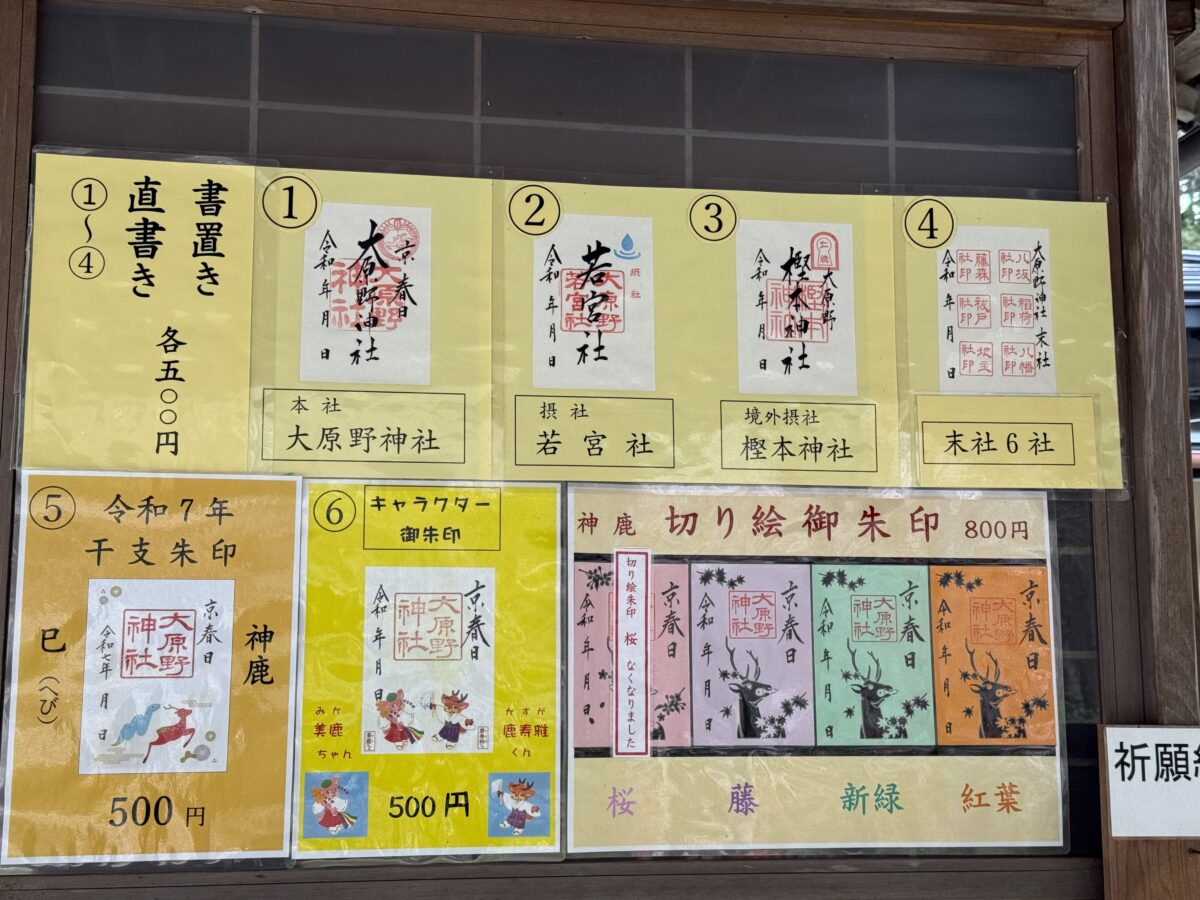 書置き
直書き
①〜④
各五〇〇円
①
京春日
大原野神社
令和 年 月 日
大原野神社
本社
大原野神社
②
摂社
若宮社
令和 年 月 日
大原野若宮社
摂社
若宮社
③
大原野
樫本神社
令和 年 月 日
境外摂社
樫本神社
④
大原野神社 末社
令和 年 月 日
八坂社印
藤森社印
稲荷社印
祓戸社印
八幡社印
地主社印
末社6社
⑤
令和7年
干支朱印
京春日
大原野神社
令和七年 月 日
神鹿
巳(へび)
500円
⑥
キャラクター
御朱印
京春日
大原野神社
令和 年 月 日
みか
美鹿
ちゃん
かすが
鹿寿雅
くん
500円
神鹿 切り絵御朱印 800円
京春日
令和 年 月 日
切り絵朱印 桜 なくなりました
京春日
大原野神社
令和 年 月 日
京春日
大原野神社
令和 年 月 日
京春日
大原野神社
令和 年 月 日
桜 藤 新緑 紅葉
祈願